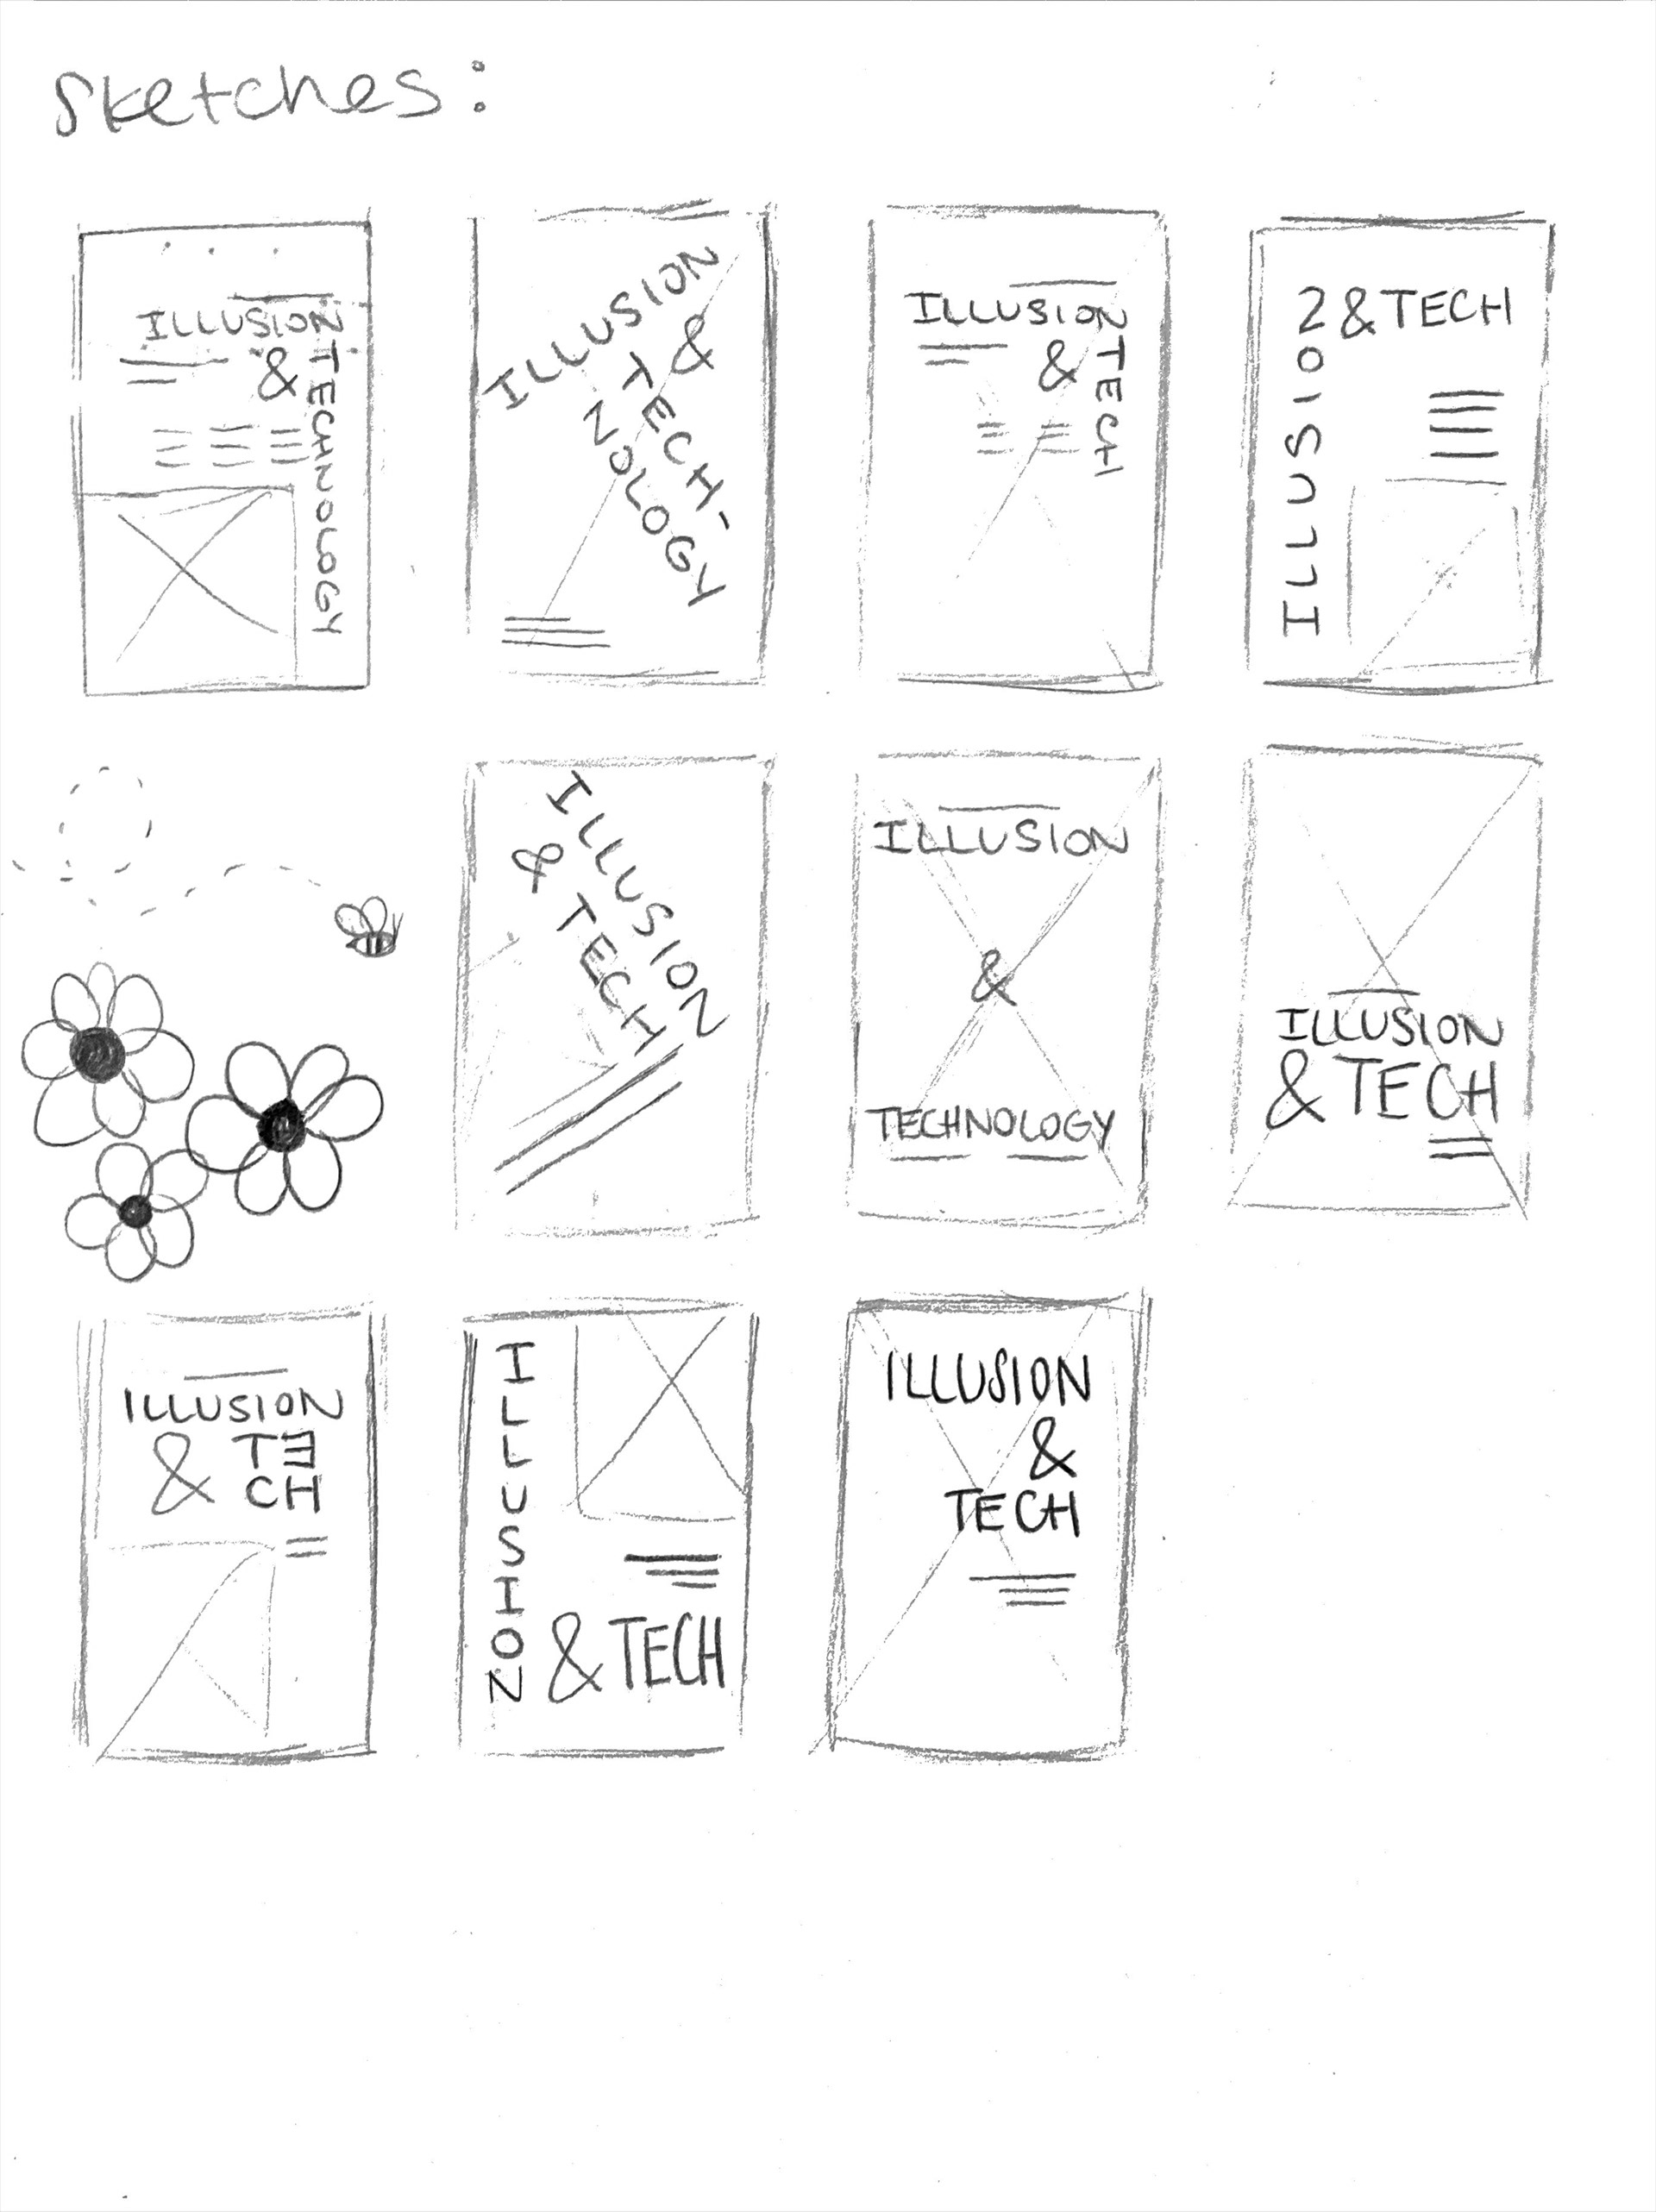 Sketches:
ILLUSION
&
TECHNOLOGY
ILLUSION
&
TECH-
NOLOGY
ILLUSION
&
TECH
ILLUSION
& TECH
ILLUSION
& TECH
ILLUSION
&
TECHNOLOGY
ILLUSION
& TECH
ILLUSION
& TE
CH
ILLUSION
& TECH
ILLUSION
&
TECH